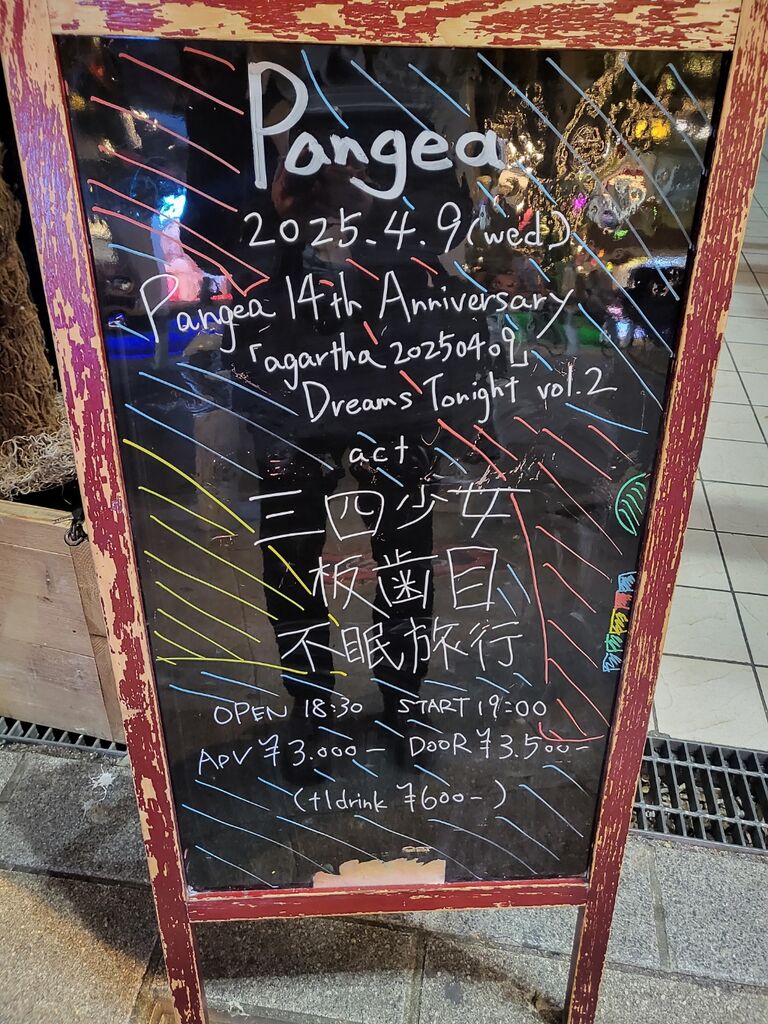 Pangea
2025.4.9(wed)
Pangea 14th Anniversary
「agartha 20250409」
Dreams Tonight vol.2
act
三四少女
板歯目
不眠旅行
OPEN 18:30 START 19:00
ADV ¥3.000- DOOR ¥3.500-
(+1drink ¥600-)